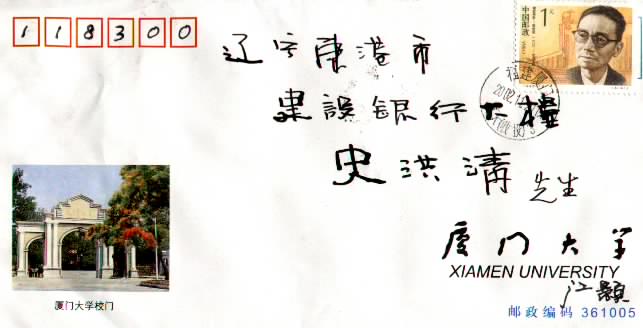 118300
1元
中国邮政
辽宁东港市
建設银行大樓
史洪清 先生
福建厦门
厦门大学
XIAMEN UNIVERSITY
江
厦门大学校门
邮政编码 361005